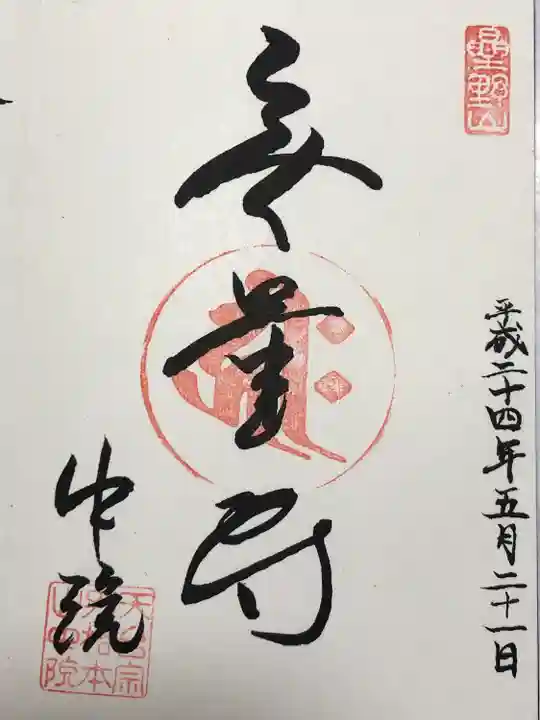 星野山
平成二十四年五月二十一日
無量寿
中院
天台宗
別格本
山中院